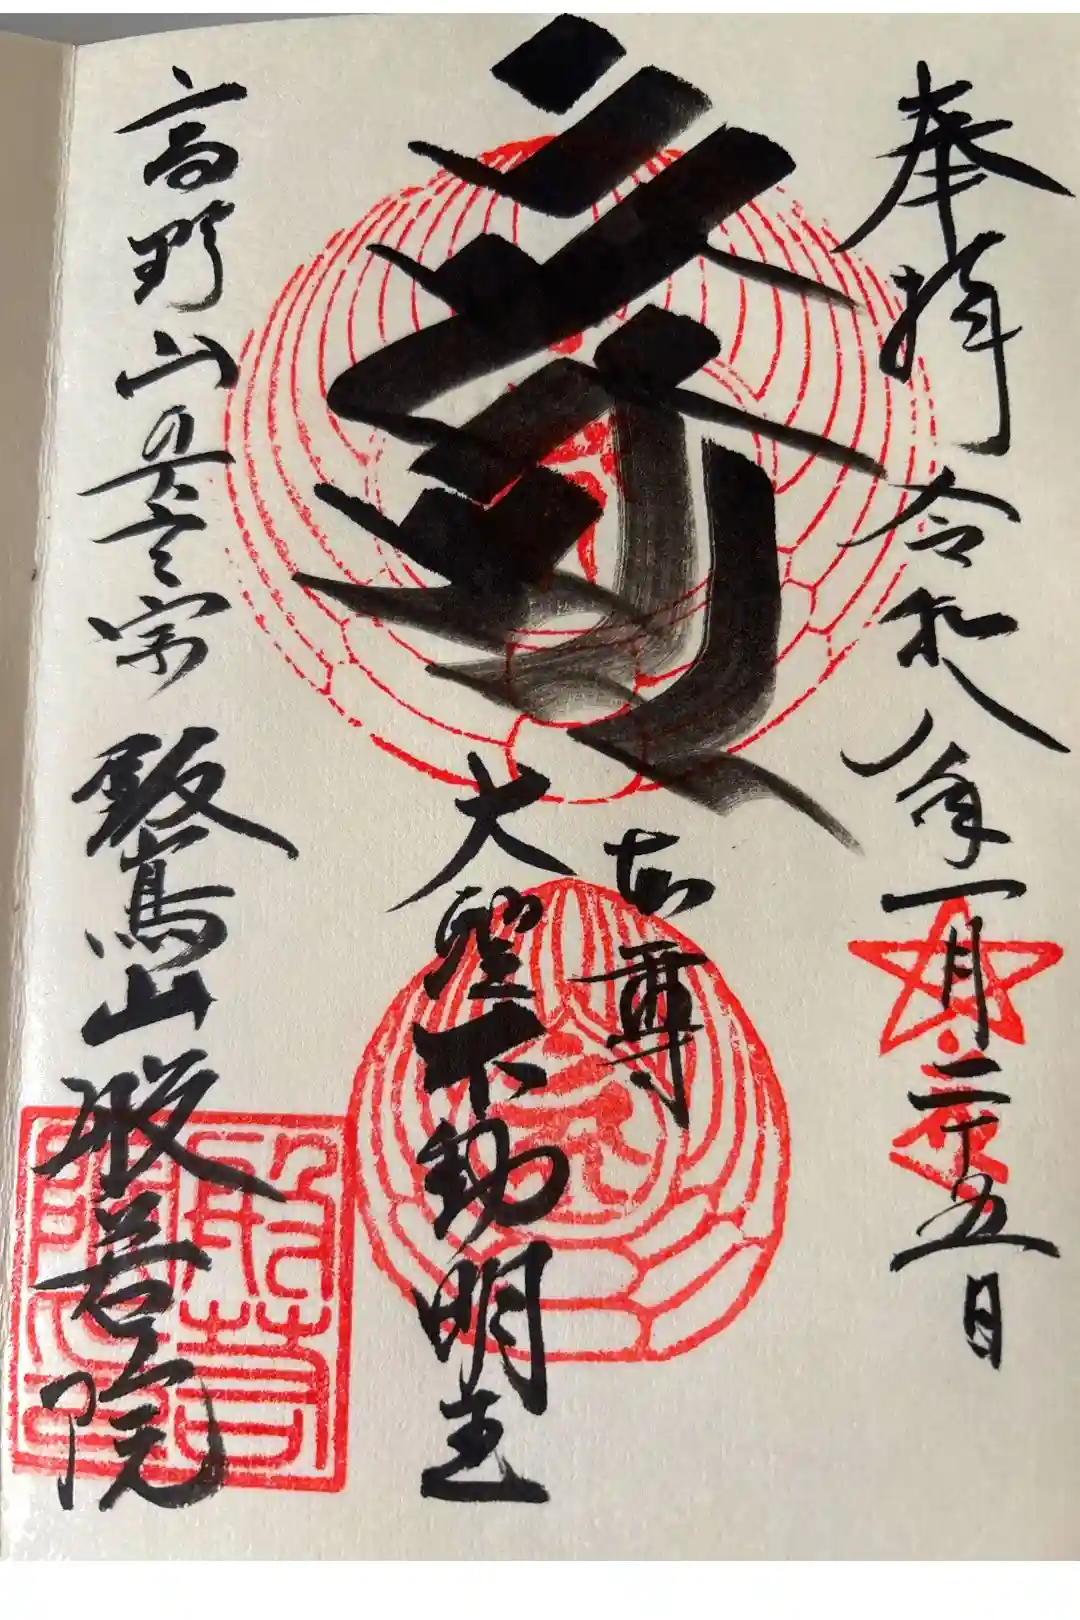 奉拝 令和八年一月二十五日
本尊
大聖不動明王
高野山真言宗
山 般若院